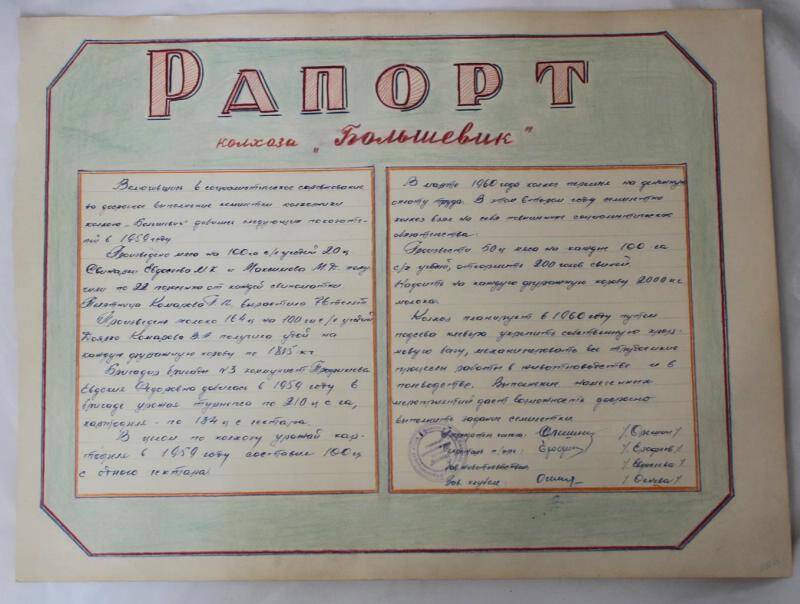 РАПОРТ
колхоза „Большевик"
Включившись в социалистическое соревнование
за досрочное выполнение семилетки колхозники
колхоза „Большевик" добились следующих показате-
лей в 1959 году
Произведено мяса на 100 га с/х угодий 20 ц
Свинарки Евдокова М.К и Максимова М.Ф. полу-
чили по 22 поросенка от каждой свиноматки.
Телятница Комарова вырастила 76 телят.
Произведено молока 164 ц на 100 га с/х угодий
Комарова получила удой на
каждую фуражную корову по 1815 кг
Бригадир бригады №3 коммунист
Евдокия Федоровна добилась в 1959 году в
бригаде урожая турнепса по 210 ц с га,
картофеля - по 134 ц с гектара.
В целом по колхозу урожай кар-
тофеля в 1959 году составил 100 ц
с одного гектара
В марте 1960 года колхоз перешел на денежную
оплату труда. В этом втором году семилетки
колхоз взял на себя повышенные социалистические
обязательства.
Произвести 50 ц мяса на каждые 100 га
с/х угодий, откормить 200 голов свиней.
Надоить на каждую фуражную корову 2000 кг
молока.
Колхоз планирует в 1960 году путем
подсева клевера укрепить собственную кормо-
вую базу, механизировать все трудоемкие
процессы работы в животноводстве и в
полеводстве. Выполнение намеченных
мероприятий даст возможность досрочно
выполнить задание семилетки.